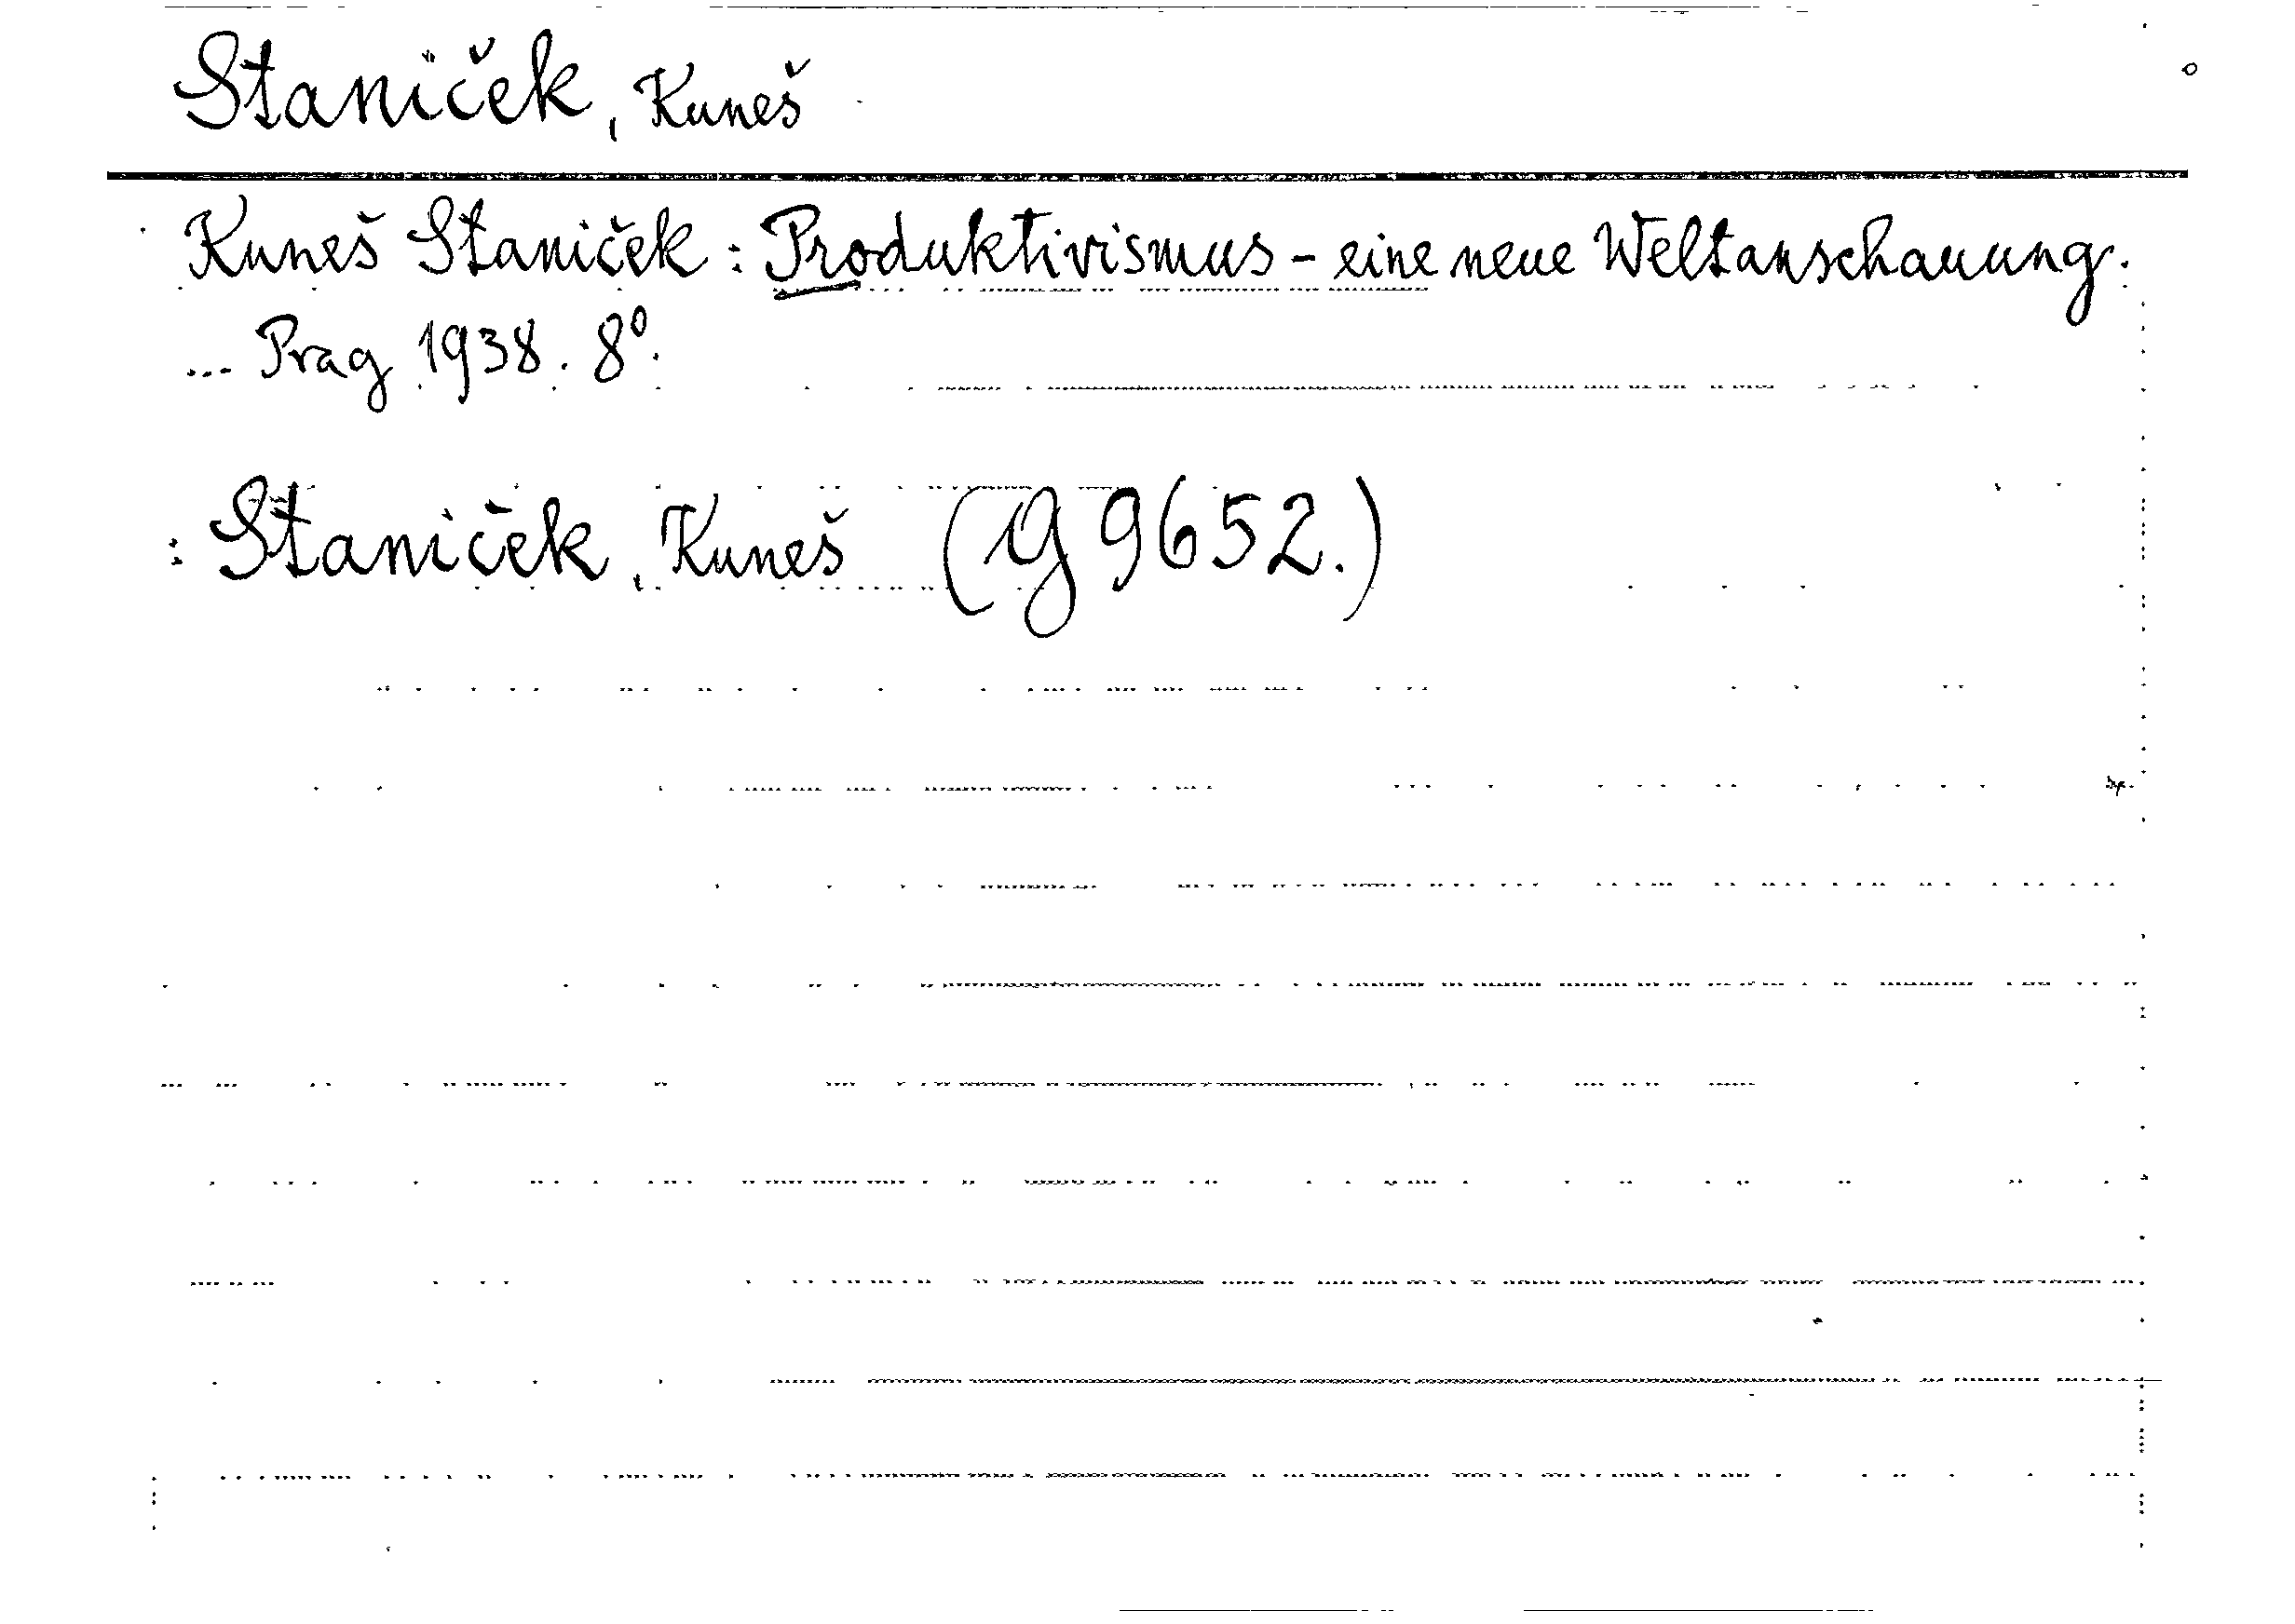 Staniček, Kuneš
Kuneš Staniček: Produktivismus - eine neue Weltanschauung.
... Prag 1938. 8°.
: Staniček, Kuneš (g 9652.)